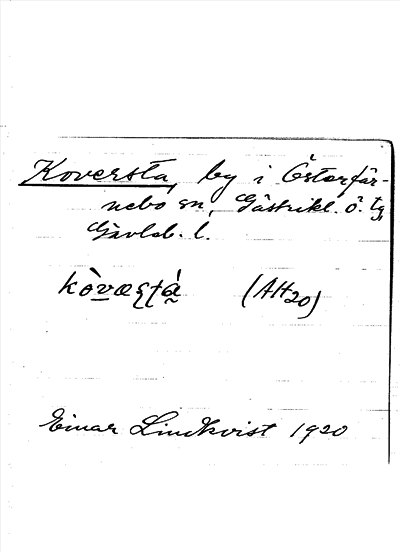 Koversta, by i Österfär-
nebo sn, Gästrikl. ö. tg,
Gävleb. l.
kòvæʂʈá (AH20)
Einar Lindkvist 1920